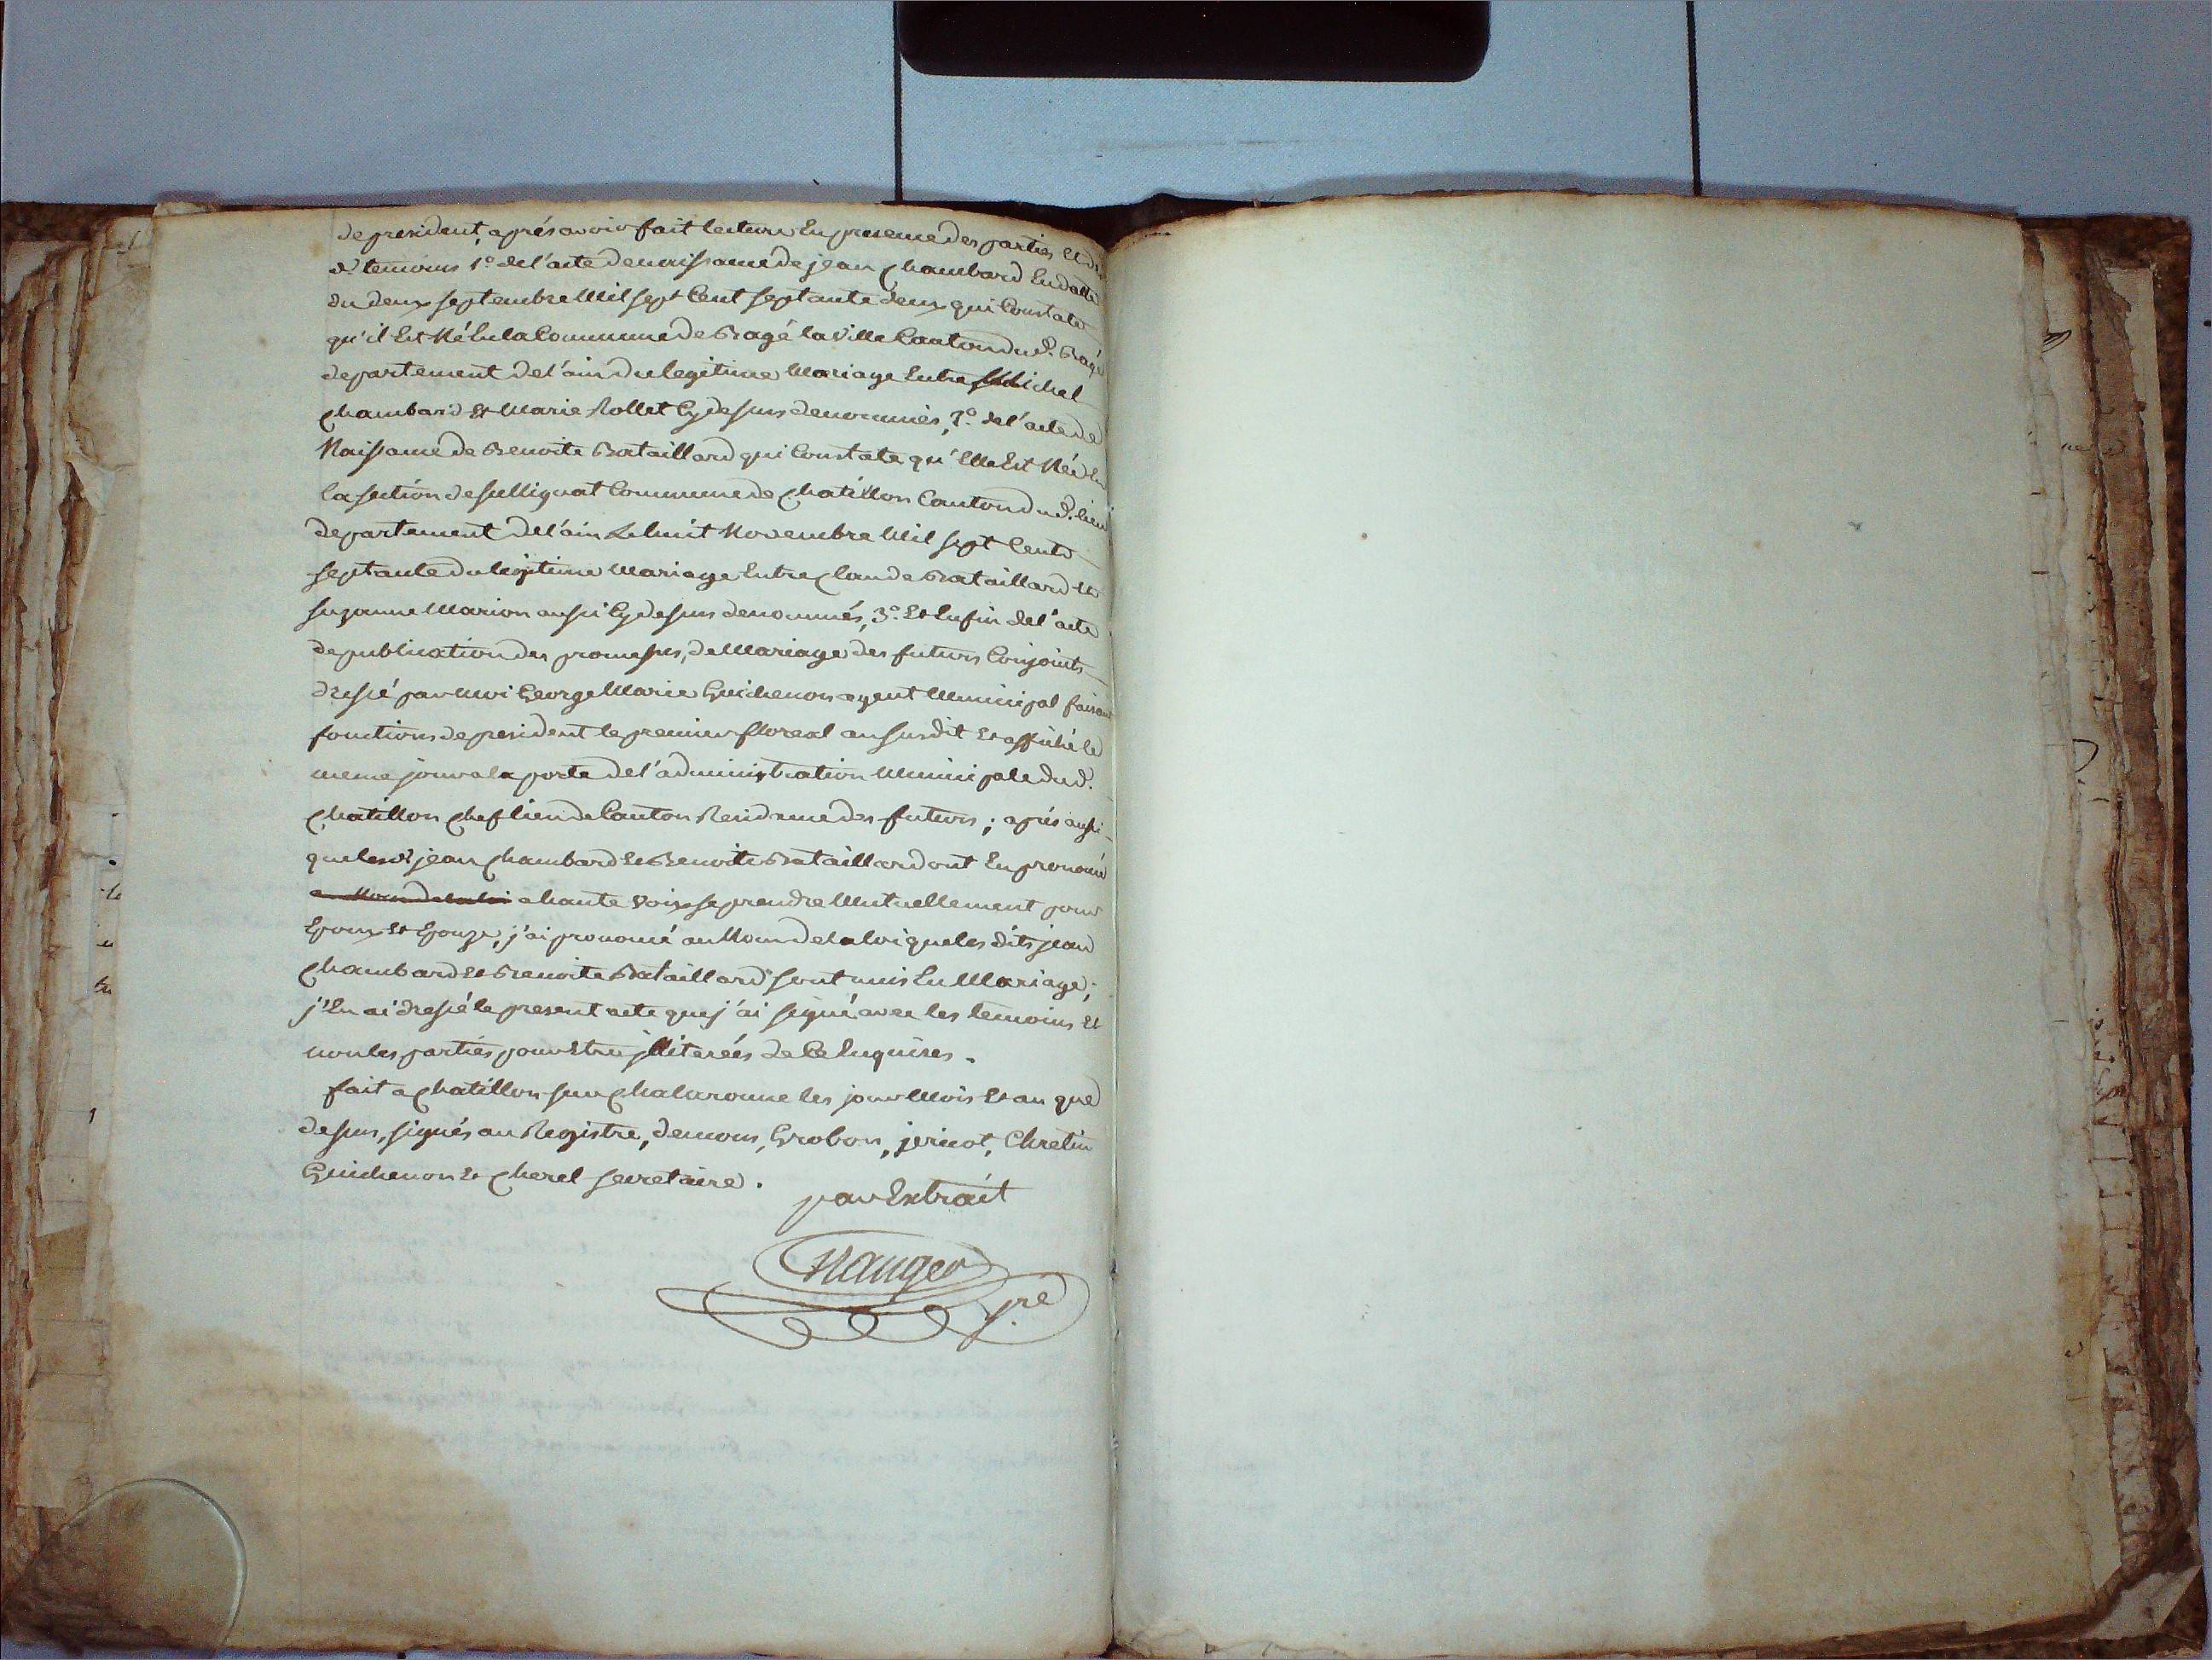 de president, aprés avoir fait lecture En presence des parties Et des
dt temoins 1° de l'acte de naissance de jean Chambard En datte
du deux septembre Mil sept Cent septante deux qui Constate
qu'il Est Né En la Commune de Bagé la Ville Canton dud. Bagé
departement de l'ain du legitime Mariage Entre Michel
Chambard Et Marie Rollet Cy dessus denommés, 2° de l'acte de
Naissance de Benoite Bataillard qui Constate qu'Elle Est Née En
la section de sullignat Commune de Chatillon Canton dud. lieu
departement de l'ain Le huit Novembre Mil sept Cents
septante du legitime Mariage Entre Claude Bataillard Et
suzanne Marion aussi Cy dessus denommés, 3° Et Enfin de l'acte
de publication des promesses, de Mariage des futurs Conjoints
dressé par Moi George Marie Guichenon agent Municipal faisant
fonctions de president le premier floreal an susdit Et affiché le
meme jour a la porte de l'administration Municipale dud.
Chatillon Chef lieu de Canton Residence des futurs ; aprés aussi
que lesd jean Chambard Et Benoite Bataillard ont En prononcé
au Nom de la loi a haute voix se prendre Mutuellement pour
Epoux Et Epouze, j'ai prononcé au Nom de la loi que les dits jean
Chambard Et Benoite Bataillard sont unis En Mariage ;
j'En ai dressé le present acte que j'ai signé avec les temoins Et
non les parties pour Etre jlliterées de Ce Enquises .
fait a Chatillon sur Chalaronne les jour Mois Et an que
dessus, signés au Registre, demons, Grobon, jericot, Chretin
Guichenon Et Cherel secretaire .
par Extrait
Nauger